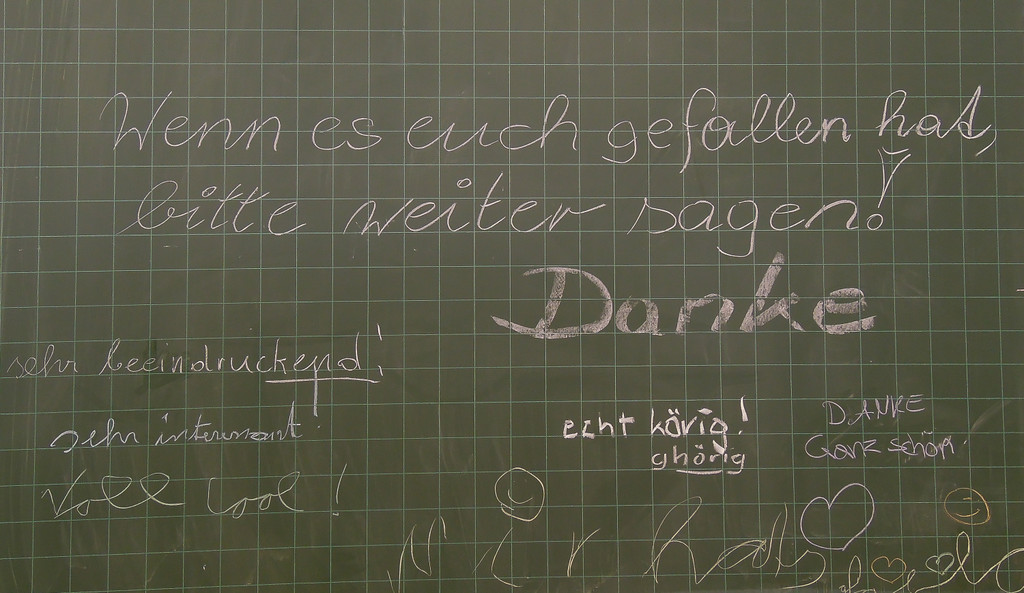 Wenn es euch gefallen hat,
bitte weiter sagen!
Danke
sehr beeindruckend!
sehr interessant!
echt körig!
ghörig
DANKE
Ganz schön.
Voll cool!